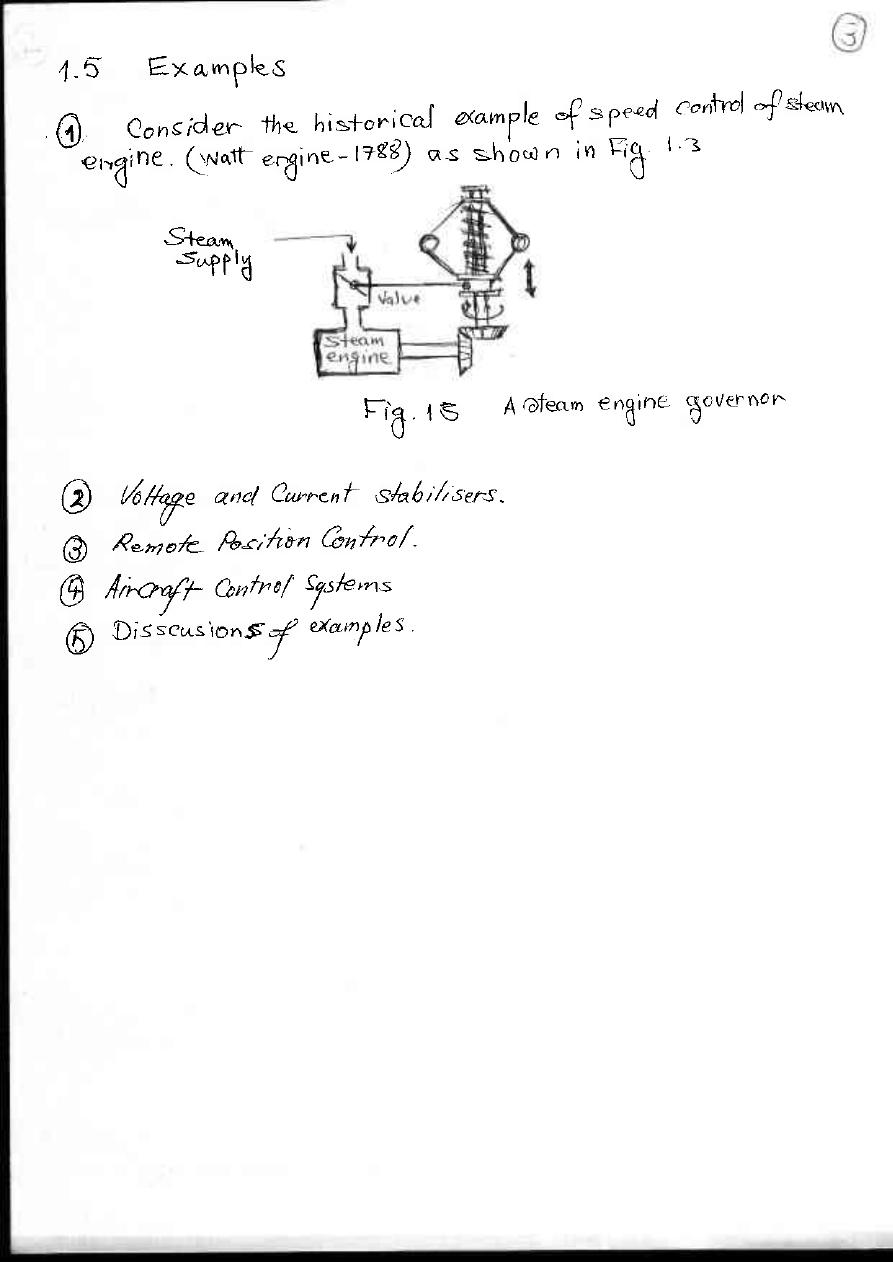 3
1.5 Examples
① Consider the historical example of speed control of steam
engine. (Watt engine-1788) as shown in Fig. 1.3
Steam
Supply
Valve
Steam
engine
Fig. 15 A steam engine governor
② Voltage and Current stabilisers.
③ Remote Position Control.
④ Aircraft Control Systems
⑤ Disscusions of examples.